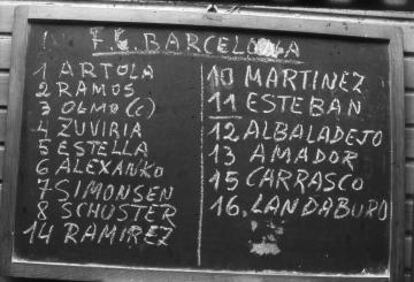 F.C. BARCELONA
1 ARTOLA
2 RAMOS
3 OLMO (C)
4 ZUVIRIA
5 ESTELLA
6 ALEXANKO
7 SIMONSEN
8 SCHUSTER
14 RAMIREZ
10 MARTINEZ
11 ESTEBAN
12 ALBALADEJO
13 AMADOR
15 CARRASCO
16. LANDABURO